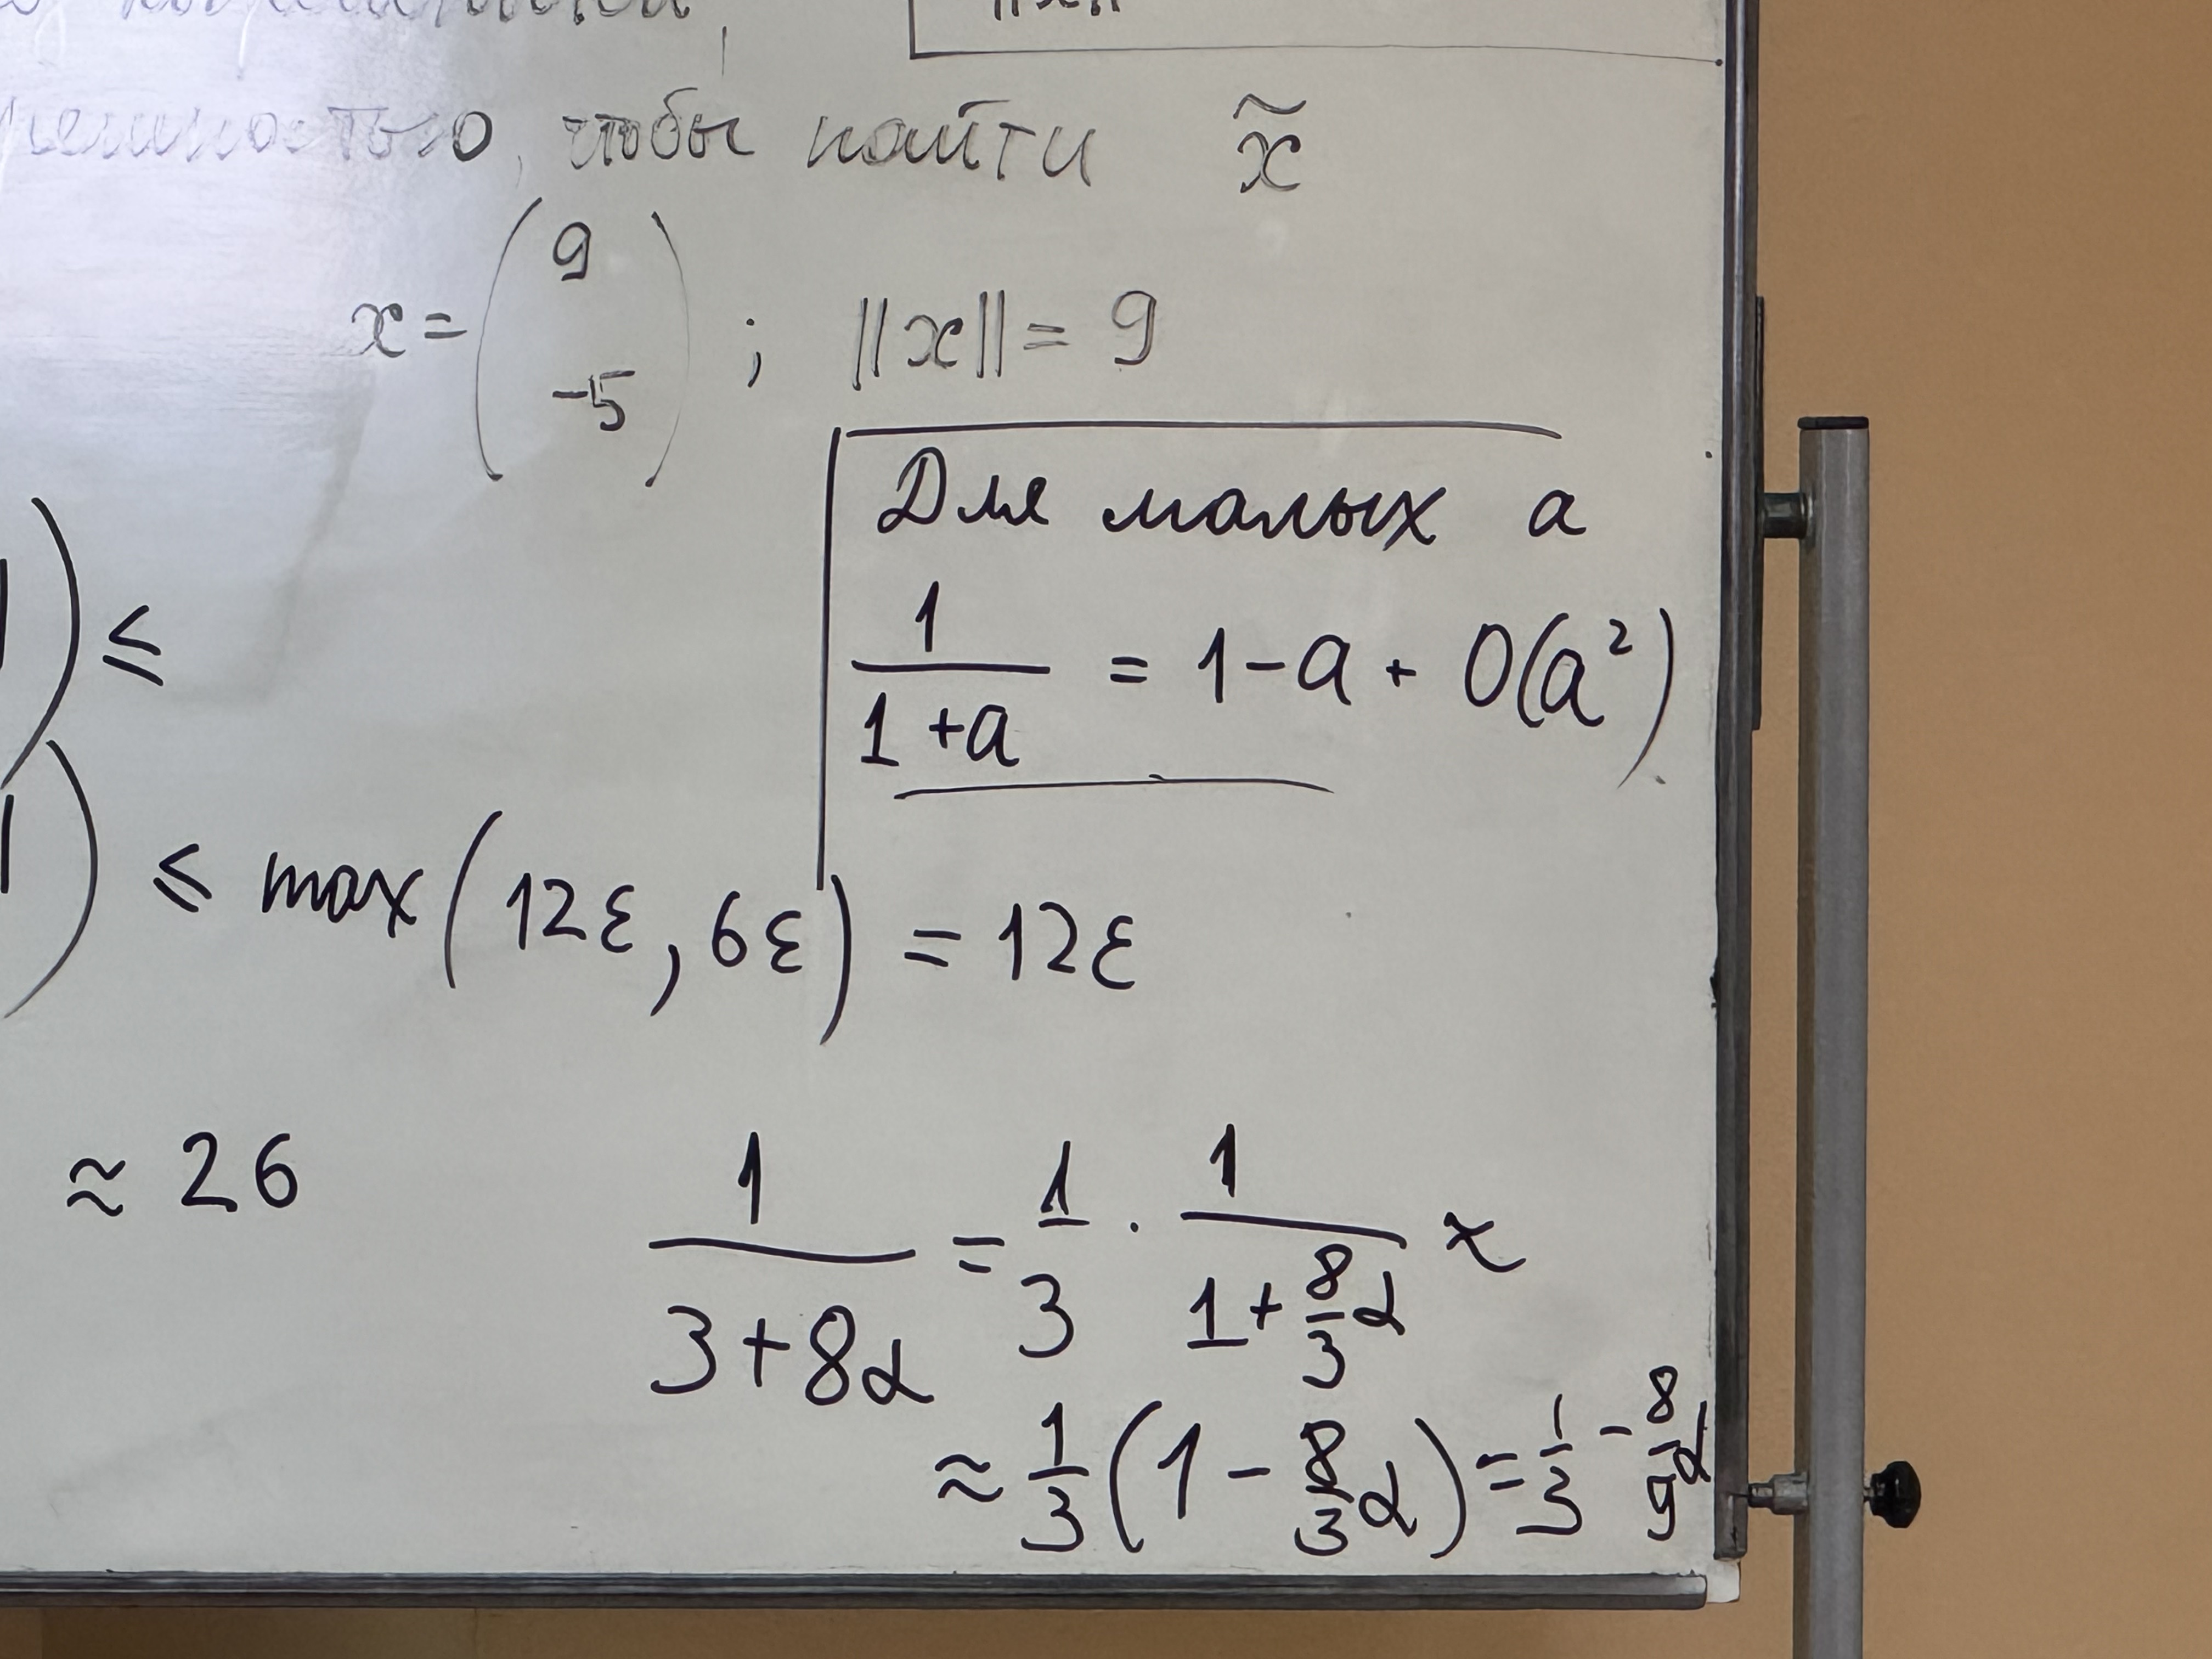 ||x||
чтобы найти x̃
x = (9 -5) ; ||x|| = 9
Для малых a
1/(1+a) = 1 - a + O(a²)
) ≤
) ≤ max(12ε, 6ε) = 12ε
≈ 26
1/(3+8α) = 1/3 · 1/(1+8/3 α) ≈
≈ 1/3 (1 - 8/3 α) = 1/3 - 8/9 α